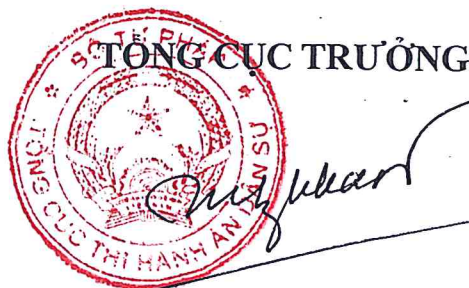 TỔNG CỤC TRƯỞNG
BỘ TƯ PHÁP
TỔNG CỤC THI HÀNH ÁN DÂN SỰ